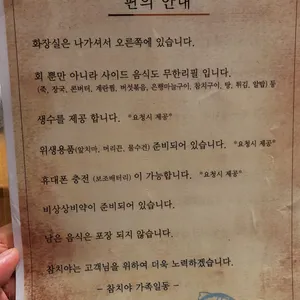 편의 안내
화장실은 나가셔서 오른쪽에 있습니다.
회 뿐만 아니라 사이드 음식도 무한리필 입니다.
(죽, 장국, 콘버터, 계란찜, 버섯볶음, 은행마늘구이, 참치구이, 탕, 튀김, 알밥) 등
생수를 제공 합니다. *요청시 제공*
위생용품(앞치마, 머리끈, 물수건) 준비되어 있습니다. *요청시 제공*
휴대폰 충전 (보조배터리) 이 가능합니다. *요청시 제공*
비상상비약이 준비되어 있습니다.
남은 음식은 포장 되지 않습니다.
참치야는 고객님을 위하여 더욱 노력하겠습니다.
- 참치야 가족일동 -